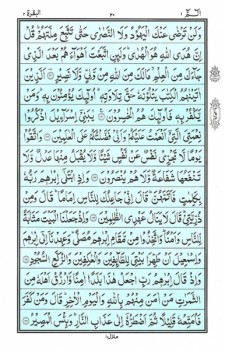 البقرة ٢
٢٠
الٓمّٓ ١
وَلَنْ تَرْضٰى عَنْكَ الْيَهُوْدُ وَلَا النَّصٰرٰى حَتّٰى تَتَّبِعَ مِلَّتَهُمْ ؕ قُلْ
اِنَّ هُدَى اللّٰهِ هُوَ الْهُدٰى ؕ وَلَئِنِ اتَّبَعْتَ اَهْوَآءَهُمْ بَعْدَ الَّذِيْ
جَآءَكَ مِنَ الْعِلْمِ ۙ مَا لَكَ مِنَ اللّٰهِ مِنْ وَّلِيٍّ وَّلَا نَصِيْرٍ ۞ اَلَّذِيْنَ
اٰتَيْنٰهُمُ الْكِتٰبَ يَتْلُوْنَهٗ حَقَّ تِلَاوَتِهٖ ؕ اُولٰٓئِكَ يُؤْمِنُوْنَ بِهٖ ؕ وَمَنْ
يَّكْفُرْ بِهٖ فَاُولٰٓئِكَ هُمُ الْخٰسِرُوْنَ ۞ يٰبَنِيْٓ اِسْرَآءِيْلَ اذْكُرُوْا
نِعْمَتِيَ الَّتِيْٓ اَنْعَمْتُ عَلَيْكُمْ وَاَنِّيْ فَضَّلْتُكُمْ عَلَى الْعٰلَمِيْنَ ۞ وَاتَّقُوْا
يَوْمًا لَّا تَجْزِيْ نَفْسٌ عَنْ نَّفْسٍ شَيْئًا وَّلَا يُقْبَلُ مِنْهَا عَدْلٌ وَّلَا
تَنْفَعُهَا شَفَاعَةٌ وَّلَا هُمْ يُنْصَرُوْنَ ۞ وَاِذِ ابْتَلٰٓى اِبْرٰهٖمَ رَبُّهٗ
بِكَلِمٰتٍ فَاَتَمَّهُنَّ ؕ قَالَ اِنِّيْ جَاعِلُكَ لِلنَّاسِ اِمَامًا ؕ قَالَ وَمِنْ
ذُرِّيَّتِيْ ؕ قَالَ لَا يَنَالُ عَهْدِي الظّٰلِمِيْنَ ۞ وَاِذْ جَعَلْنَا الْبَيْتَ مَثَابَةً
لِّلنَّاسِ وَاَمْنًا ؕ وَاتَّخِذُوْا مِنْ مَّقَامِ اِبْرٰهٖمَ مُصَلًّى ؕ وَعَهِدْنَآ اِلٰٓى اِبْرٰهٖمَ
وَاِسْمٰعِيْلَ اَنْ طَهِّرَا بَيْتِيَ لِلطَّآئِفِيْنَ وَالْعٰكِفِيْنَ وَالرُّكَّعِ السُّجُوْدِ ۞
وَاِذْ قَالَ اِبْرٰهٖمُ رَبِّ اجْعَلْ هٰذَا بَلَدًا اٰمِنًا وَّارْزُقْ اَهْلَهٗ مِنَ
الثَّمَرٰتِ مَنْ اٰمَنَ مِنْهُمْ بِاللّٰهِ وَالْيَوْمِ الْاٰخِرِ ؕ قَالَ وَمَنْ كَفَرَ
فَاُمَتِّعُهٗ قَلِيْلًا ثُمَّ اَضْطَرُّهٗٓ اِلٰى عَذَابِ النَّارِ ؕ وَبِئْسَ الْمَصِيْرُ ۞
منزل ١